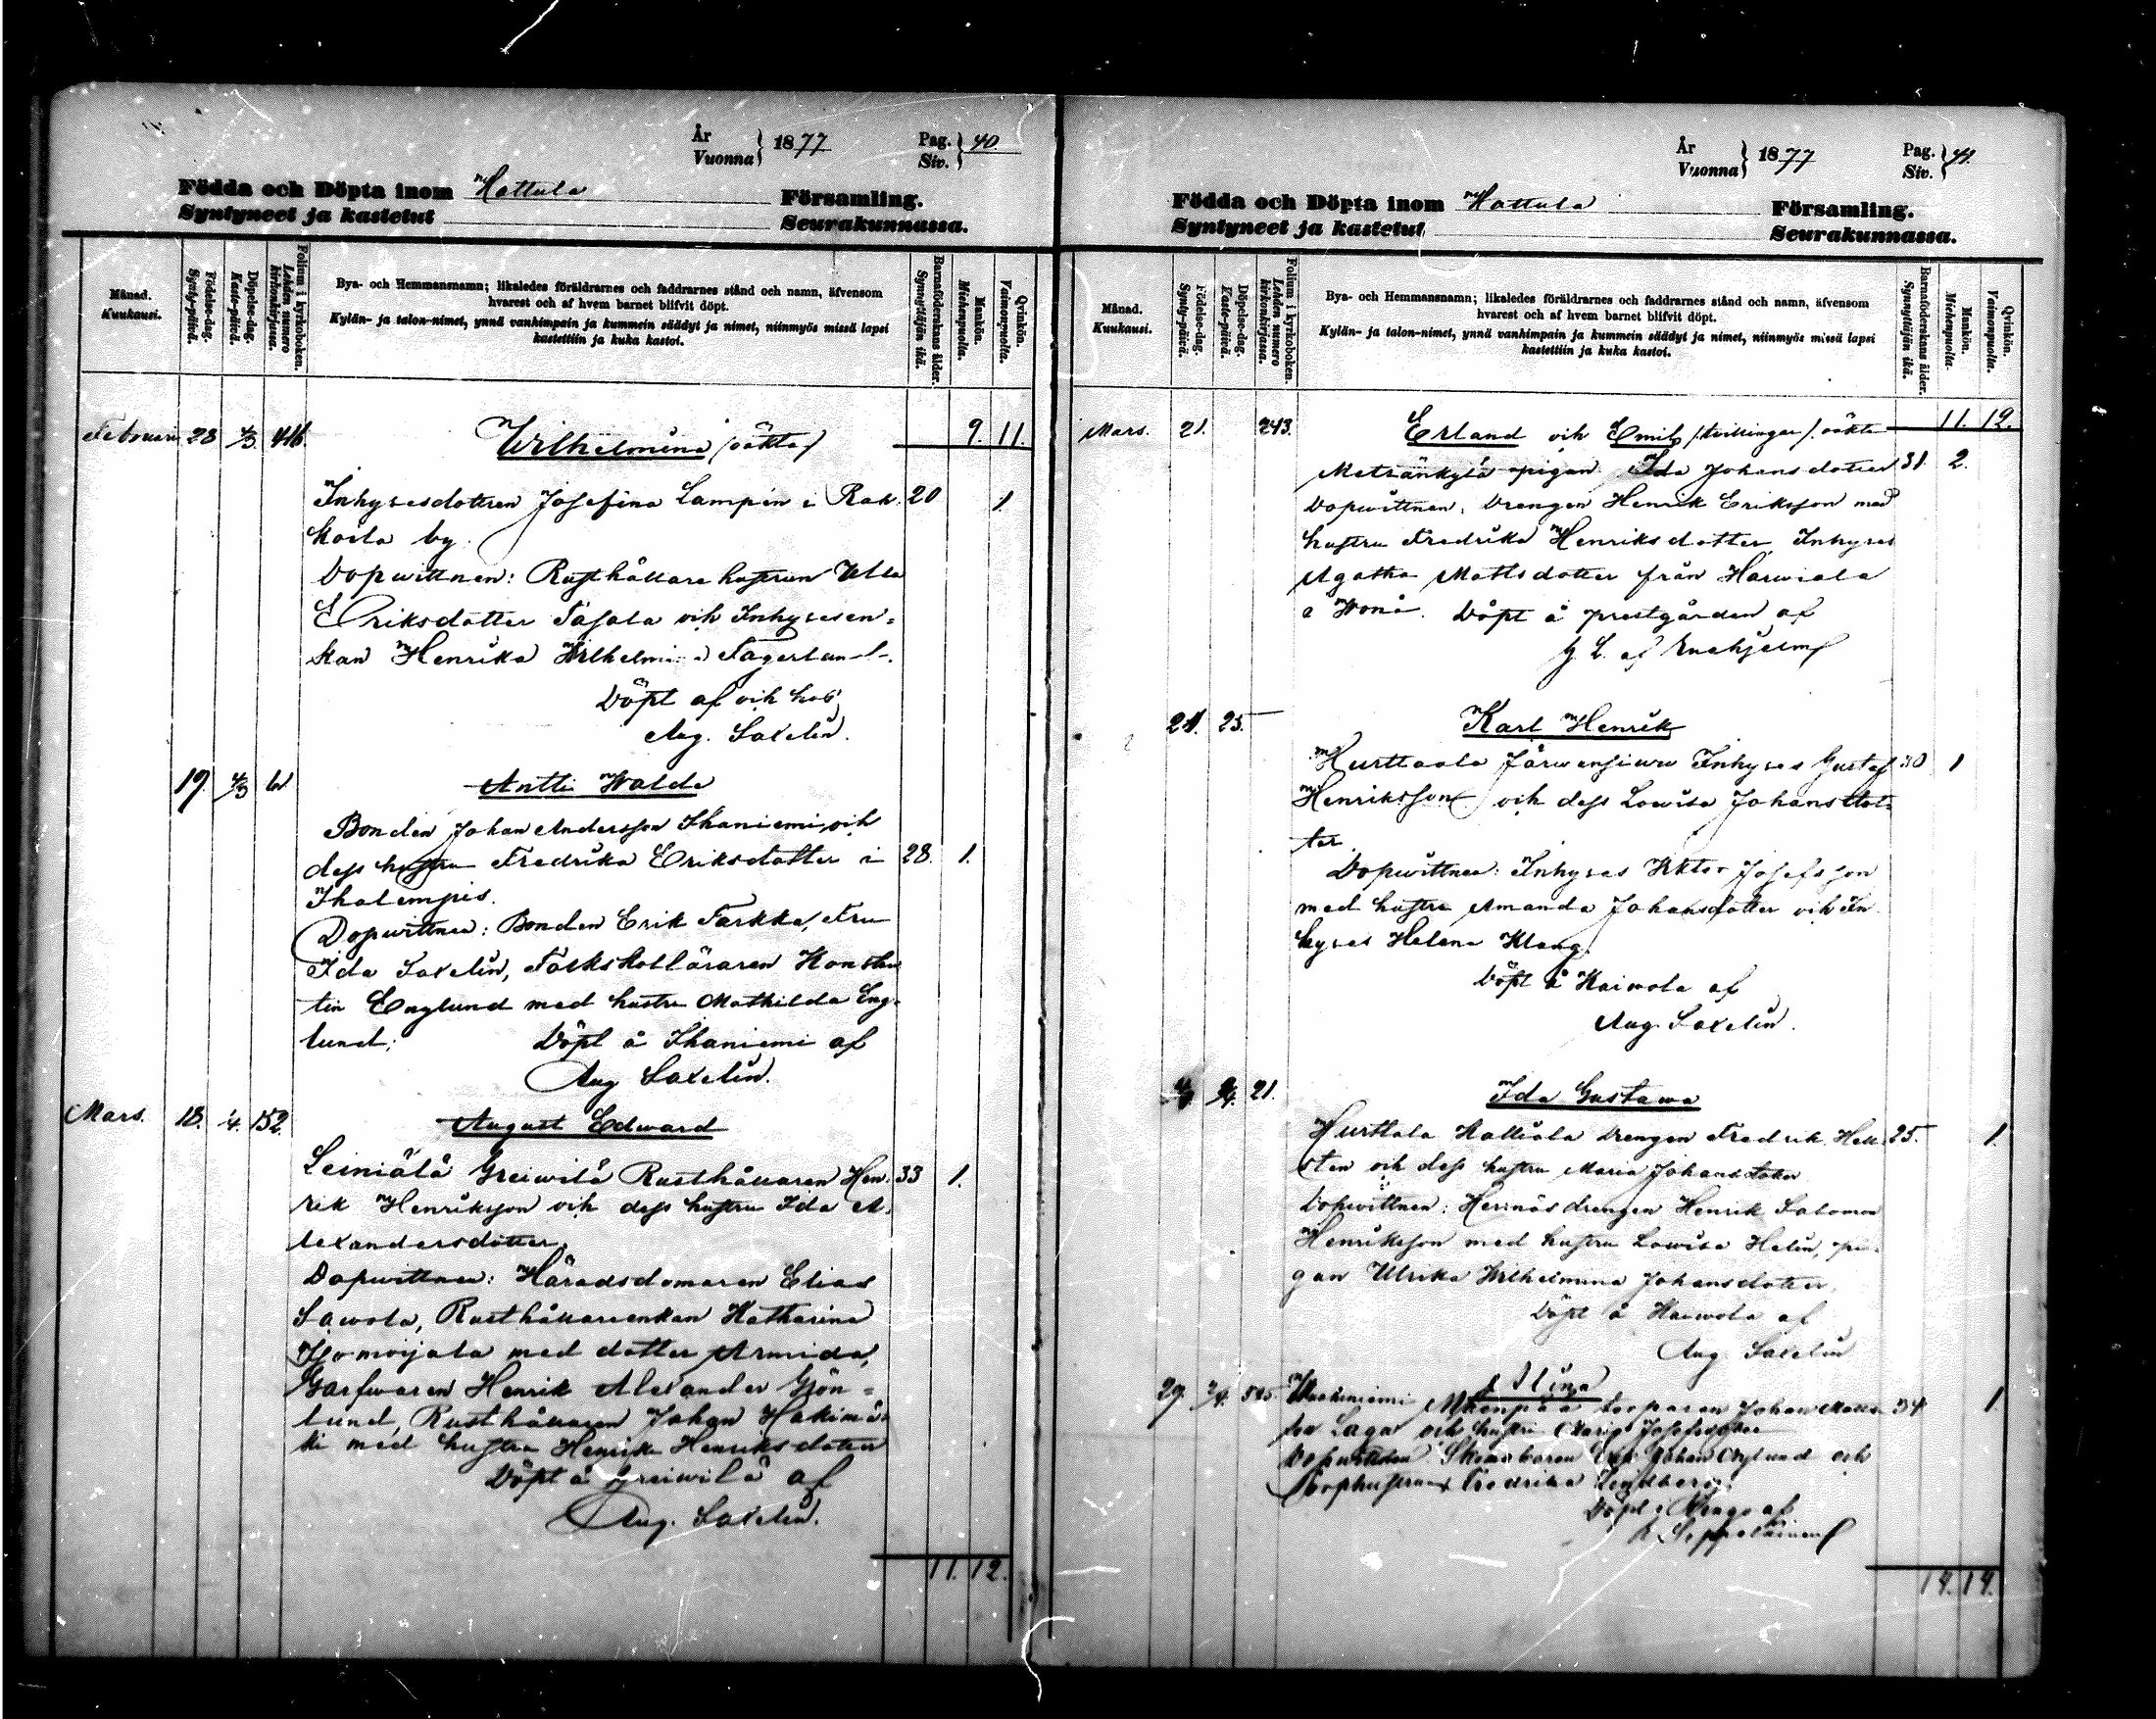 År
Vuonna } 1877 Pag.
Siv. } 40.
Födda och Döpta inom Hattula Församling.
Syntyneet ja kastetut Seurakunnassa.
Månad.
Kuukausi.
Födelse-dag.
Synty-päivä.
Döpelse-dag.
Kaste-päivä.
Folium i kyrkoboken.
Lehden numero
kirkonkirjassa.
Bya- och Hemmansnamn; likaledes föräldrarnes och faddrarnes stånd och namn, äfvensom
hvarest och af hvem barnet blifvit döpt.
Kylän- ja talon-nimet, ynnä vanhimpain ja kummein säädyt ja nimet, niinmyös missä lapsi
kastettiin ja kuka kastoi.
Barnaföderskans ålder.
Synnyttäjän ikä.
Mankön.
Miehenpuolta.
Qvinkön.
Vaimonpuolta.
Februari 28 4/3. 416. Wilhelmina (oäkta) 9. 11.
Inhysesdottren Josefina Lampén i Rah- 20 1
koila by.
Dopwittnen: Rusthållare hustrun Ulla
Eriksdotter Täjala och Inhysesen-
kan Henrika Wilhelmina Fagerlund.
Döpt af och hos
Aug. Saxelin.
19. 4/3 Antti Waldu
Bonden Johan Andersson Ihaniemi och
dess hustru Fredrika Eriksdotter i 28. 1.
Ihalempis.
Dopwittnen: Bonden Erik Tarkka, Fru
Ida Saxelin, Folkskolläraren Konstan
tin Englund med hustru Mathilda Eng-
lund; Döpt å Ihaniemi af
Aug Saxelin.
Mars. 18. 152. August Edward
Leiniälä Greiwilä Rusthållaren Hen- 33 1.
rik Henriksson och dess hustru Ida A-
lexandersdotter.
Dopwittnen: Häradsdomaren Elias
Sawola, Rusthållareenkan Katharina
med dotter Armida,
Garfwaren Henrik Alexander Grön-
lund, Rusthållaren Johan Hakimä-
ki med hustru Henrika Henriksdotter
Döpt å Greiwilä af
Aug. Saxelin.
11. 12.
År
Vuonna } 1877 Pag.
Siv. } 41.
Födda och Döpta inom Hattula Församling.
Syntyneet ja kastetut Seurakunnassa.
Månad.
Kuukausi.
Födelse-dag.
Synty-päivä.
Döpelse-dag.
Kaste-päivä.
Folium i kyrkoboken.
Lehden numero
kirkonkirjassa.
Bya- och Hemmansnamn; likaledes föräldrarnes och faddrarnes stånd och namn, äfvensom
hvarest och af hvem barnet blifvit döpt.
Kylän- ja talon-nimet, ynnä vanhimpain ja kummein säädyt ja nimet, niinmyös missä lapsi
kastettiin ja kuka kastoi.
Barnaföderskans ålder.
Synnyttäjän ikä.
Mankön.
Miehenpuolta.
Qvinkön.
Vaimonpuolta.
Mars. 21. 243. Erland och Emil (tvillingar) oäkta 11. 12.
Metsänkylä pigan Ida Johansdotter 31. 2.
Dopwittnen: Drengen Henrik Eriksson med
hustru Fredrika Henriksdotter, Inhyses
Agatha Mattsdotter från Harwiala
i Wonå. Döpt å prestgården af
G L. af Enehjelm
21. 25. Karl Henrik
Hurttaala Inhyses Gustaf 30 1
Henriksson och dess Lowisa Johansdot-
ter.
Dopwittnen: Inhyses Viktor Josefsson
med hustru Amanda Johansdotter och In
hyses Helena Klang.
Döpt å Kaiwola af
Aug. Saxelin.
21. Ida Gustawa
Hurttala Kattiala Drengen Fredrik Hell- 25. 1.
sten och dess hustru Maria Johansdotter
Dopwittnen: Herrnäs drengen Henrik Salomon
Henriksson med hustru Lowisa Helin, pi-
gan Ulrika Wilhelmina Johansdotter.
Döpt å Kaiwola af
Aug Saxelin
29. Alina
torparen Johan Matts- 34 1
son Lagu och hustru Maria Josefsdotter
Dopwittnen Johan Nylund och
Torphustrun Fredrika Lindberg.
Döpt i af
Seppeläinen
14. 14.